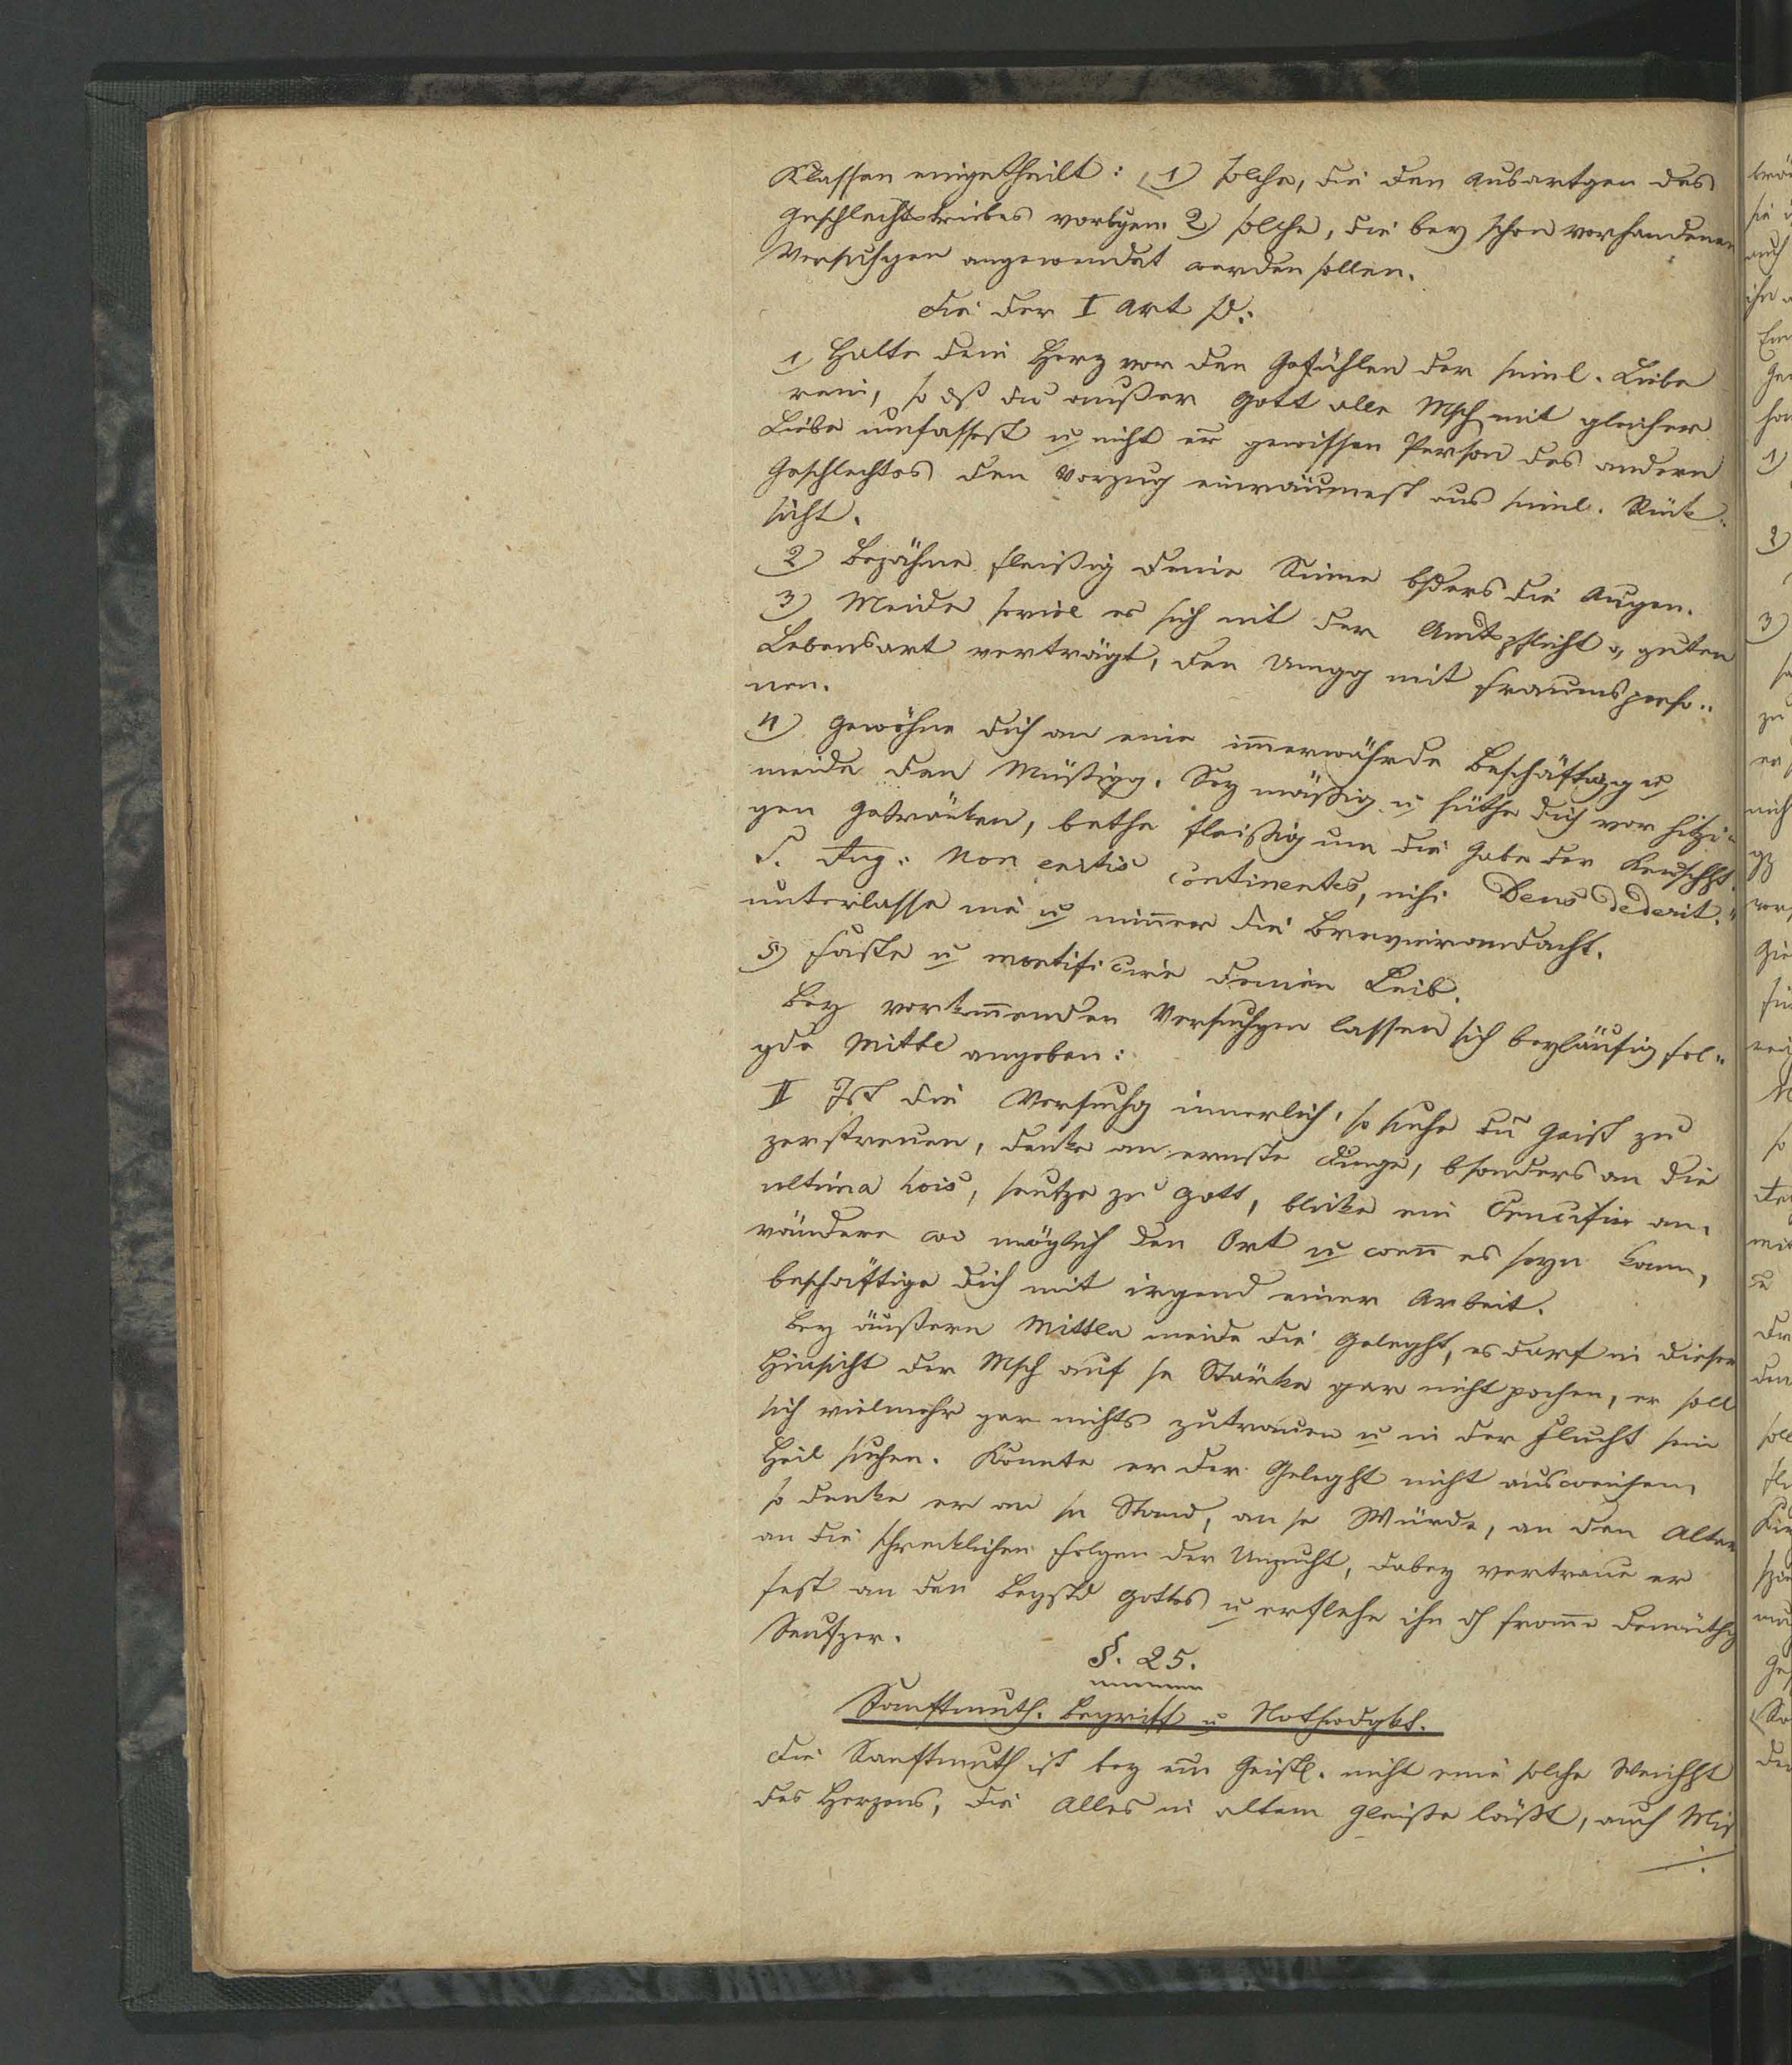 Klassen eingetheilt: 1) solche, die den Ausartgen des
Geschlechtstriebes vorbgen. 2) solche, die bey schon vorhandenen
Versuchgen angewendet werden sollen.
Die der I Art sd:
1) Halte dein Herz vor den Gefühlen der sinnl. Liebe
rein, so dß du außer Gott alle Msch mit gleicher
Liebe umfassest u nicht er gewissen Person des andern
Geschlechtes den Vorzug einräumest aus sinnl. Rük-
sicht.
2) Bezähme fleißig deine Sinne bsders die Augen.
3) Meide soviel es sich mit der Amtspflicht u guten
Lebensart verträgt, den Umgg mit Fraunsperso-
nen.
4) Gewöhne dich an eine immerwährde Beschäftigg u
meide den Müßigg. Sey mäßig u hüthe dich vor hitzi-
gen Getränken, bethe fleißig um die Gabe der Keuschht.
S. Aug: Non eritis continentes, nisi Deus dederit."
unterlasse nie u nimmer die Brevierandacht.
5) Faste u mortificire deinen Leib.
Bey vorkommenden Versuchgen lassen sich beyläufig fol-
gde Mittl angeben:
II Ist die Versuchg innerlich, so suche den Geist zu
zerstreuen, denke an ernste Dinge, bsonders an die
ultima hois, seufze zu Gott, blicke ein Crucifix an,
rändere wo möglich den Ort u wenn es seyn kann,
beschäftige dich mit irgend einer Arbeit.
Bey äußern Mitteln meide die Geleght, es darf in dieser
Hinsicht der Msch auf se Stärke gar nicht pochen, er soll
sich vielmehr gar nichts zutrauen u in der Flucht sein
Heil suchen. Könnte er der Geleght nicht ausweichen,
so denke er an sn Stand, an se Würde, an den Altar
an die schrecklichen Folgen der Unzucht, dabey vertraue er
fest an den Beystd Gottes u erflehe ihn dh fromme demüthg
Seufzer.
§. 25.
Sanftmuth. Begriff u Nothwdgkt.
Die Sanftmuth ist bey em Geistl. nicht eine solche Weichht
des Herzens, die Alles in altem Gleiße läßt, auch Mis